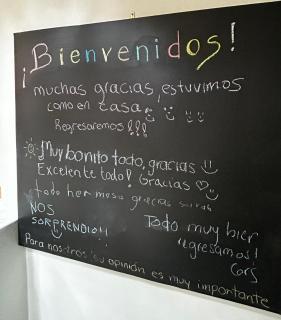 ¡Bienvenidos!
muchas gracias, estuvimos
como en casa
Regresaremos!!!
Muy bonito todo, gracias
Excelente todo! Gracias
todo hermoso gracias
NOS
SORPRENDIO!!
Todo muy bien
regresamos!
Para nosotros su opinión es muy importante